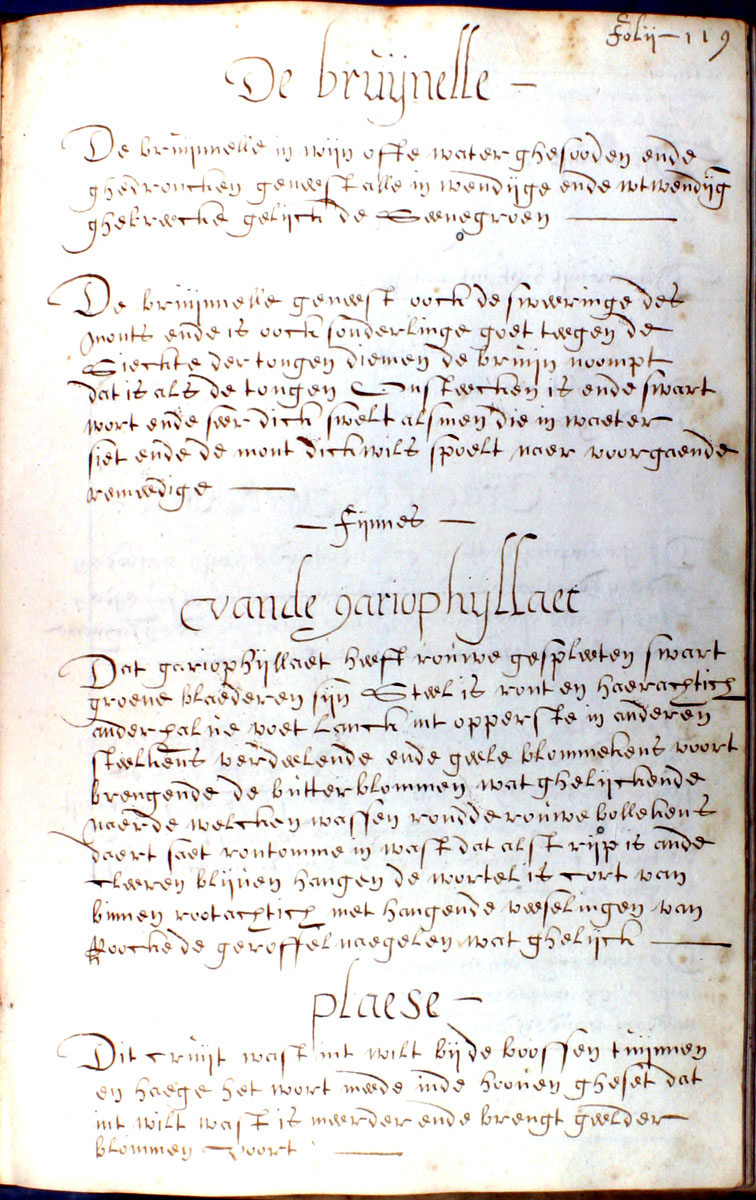 Folij – 119
De bruijnelle –
De bruijnnelle in wijn ofte water ghesooden ende
ghedroncken geneest alle in wendijge ende wtwendijg
ghebreecke gelijck de Seenegroen —
De bruijnnelle geneest oock de sweeringe des
monts ende is oock sonderlinge goet teegen de
Siechte der tongen diemen de bruijn noompt
dat is als de tongen Onsteecken is ende swart
wort ende seer dick swelt alsmen die in waeter
siet ende de mont dickwils spoelt naer voorgaende
remeedige —
– Fijnnes –
vande gariophyllaet
Dat gariophijllaet heeft rouwe gespleeten swart
groene blaederen sijn Steel is ront en haerachtich
anderhalve voet lanck int opperste in anderen
steelkens verdeelende ende geele blommekens voort
brengende de butterblommen wat ghelijckende
naerde welcken wassen rondde rouwe bollekens
daert saet rontomme in wast dat alst rijp is ande
cleeren blijven hangen de wortel is cort van
binnen rootachtich met hangende veeselingen van
Roocke de geroffel naegelen wat ghelijck —
plaese –
Dit cruijt wast int wilt bijde boossen tuijnnen
en haege het wort meede inde hooven gheset dat
int wilt wast is meerder ende brengt geelder
blommen Voort —